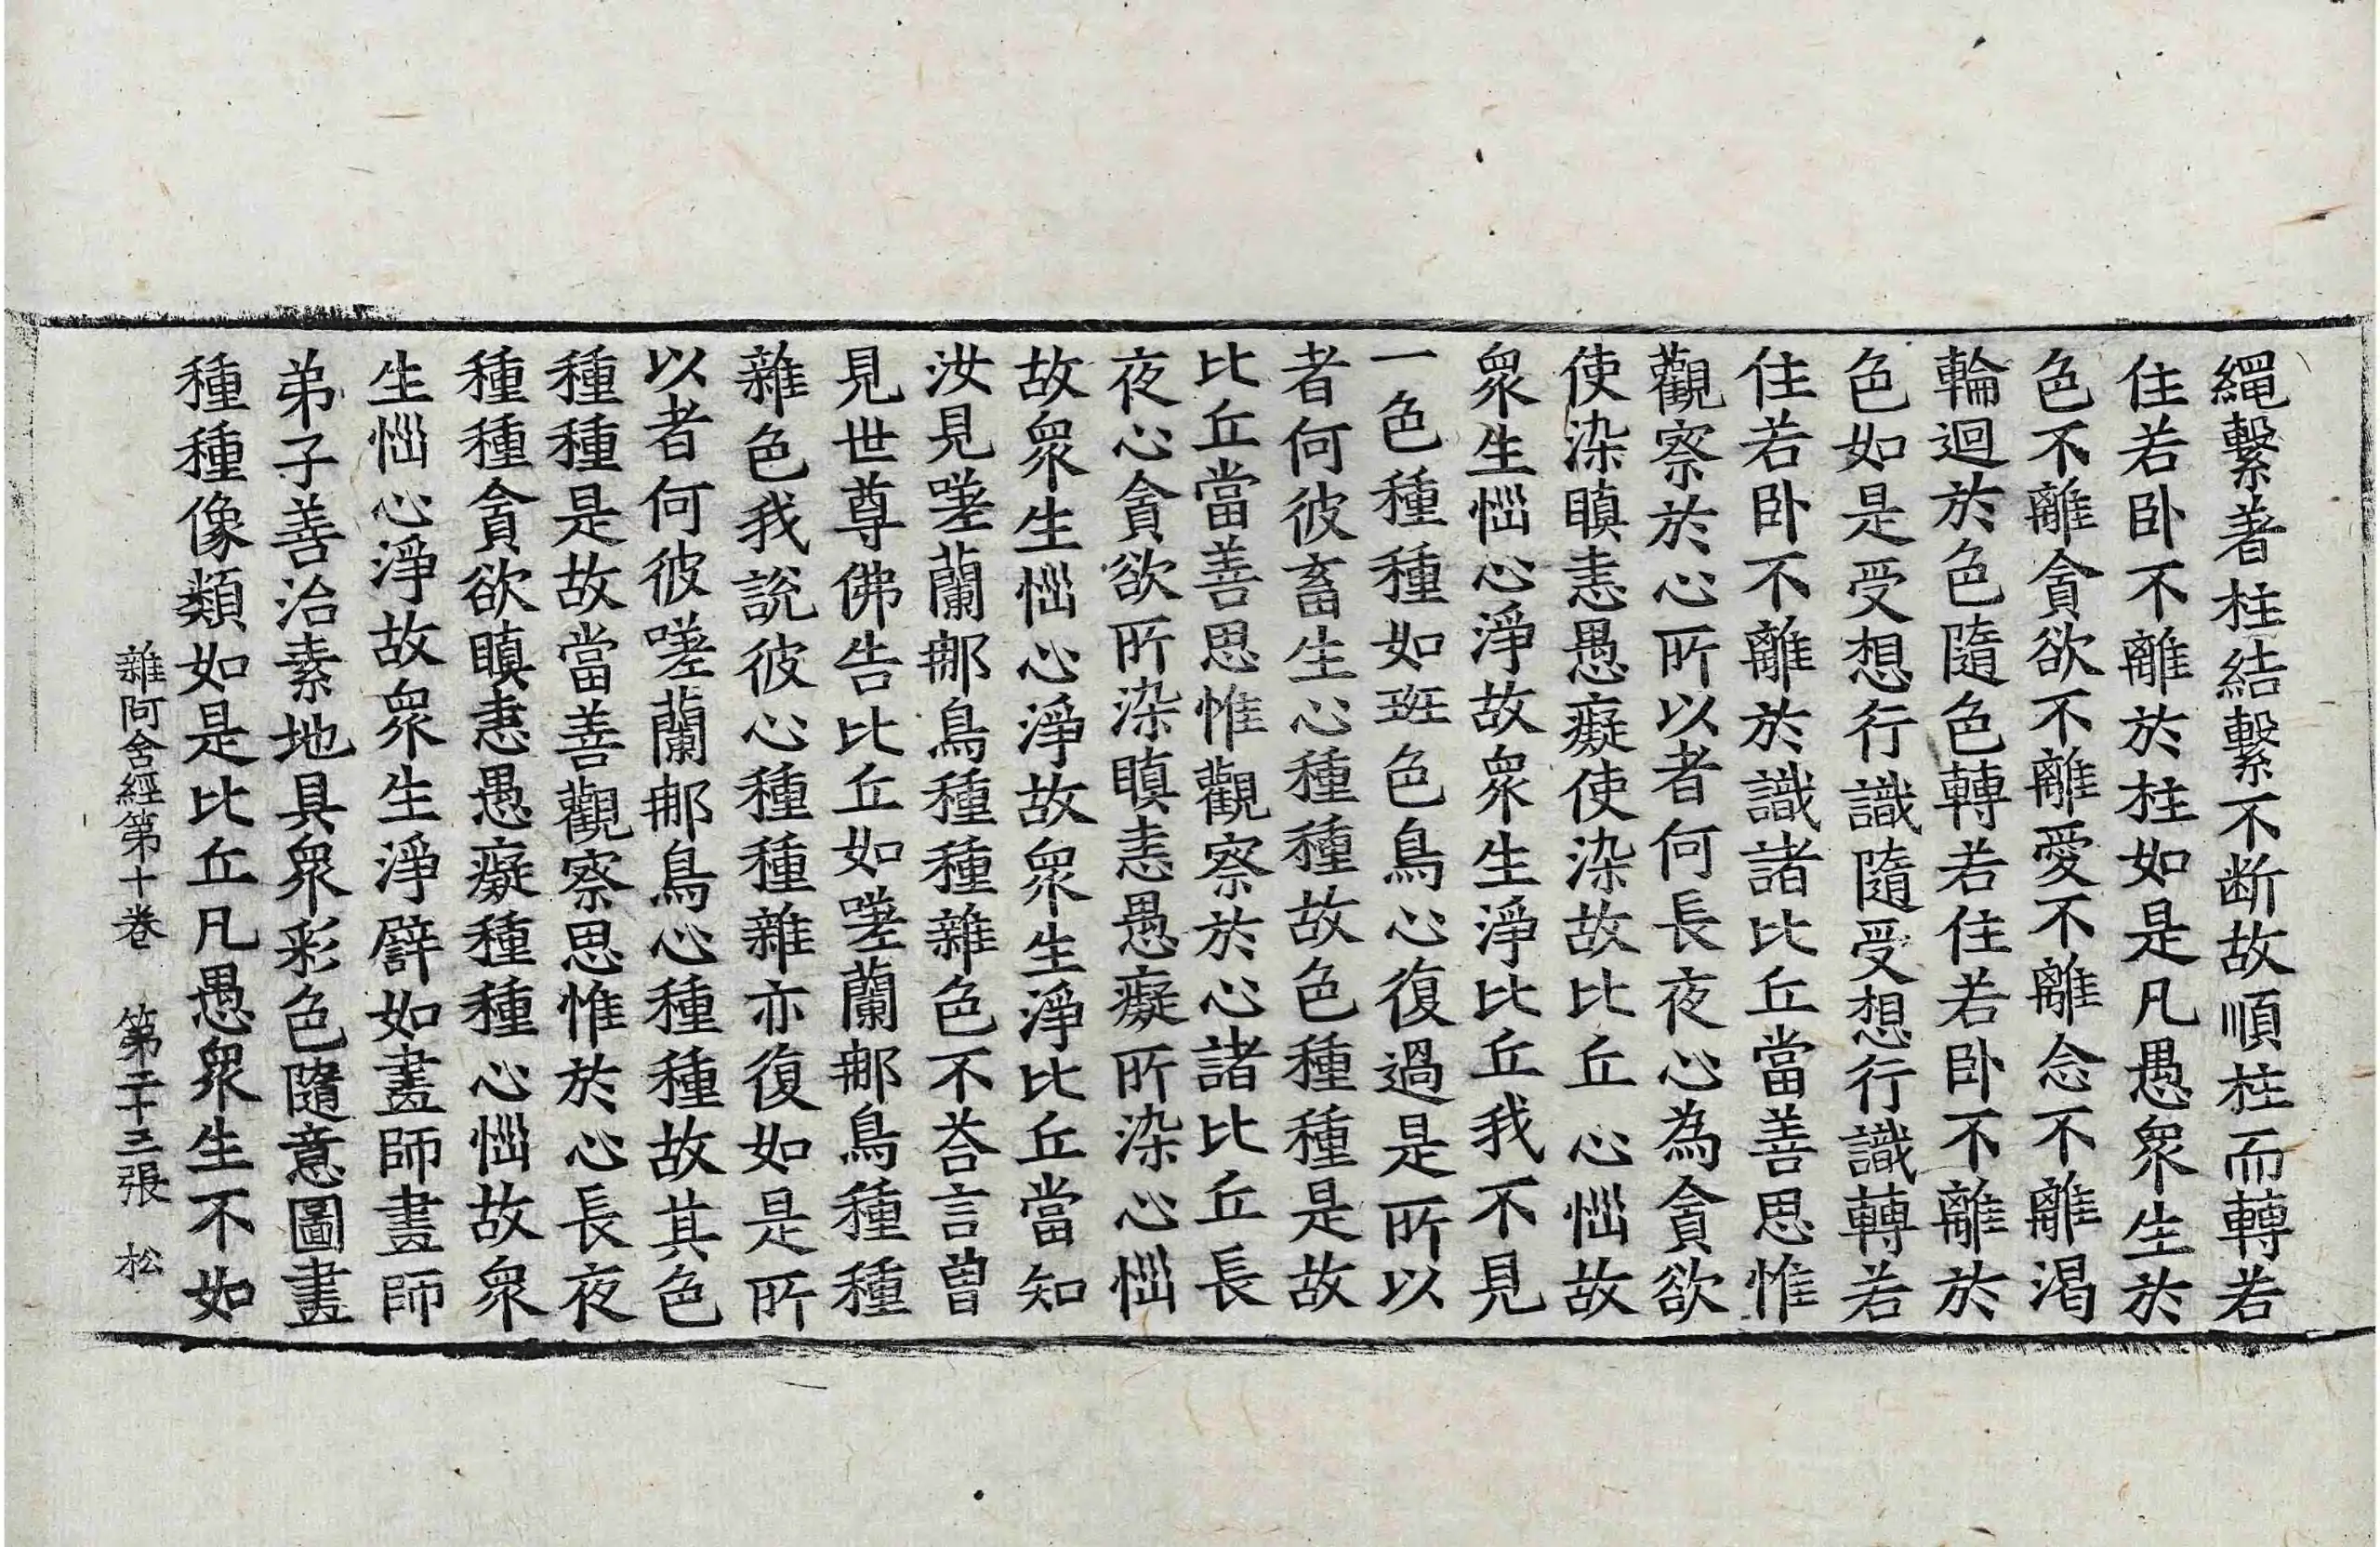 繩繫著柱結繫不断故順柱而轉若
住若卧不離於柱如是凡愚衆生於
色不離貪欲不離愛不離念不離渴
輪迴於色隨色轉若住若卧不離於
色如是受想行識隨受想行識轉若
住若卧不離於識諸比丘當善思惟
觀察於心所以者何長夜心為貪欲
使染瞋恚愚癡使染故比丘心惱故
衆生惱心淨故衆生淨比丘我不見
一色種種如班色鳥心復過是所以
者何彼畜生心種種故色種種是故
比丘當善思惟觀察於心諸比丘長
夜心貪欲所染瞋恚愚癡所染心惱
故衆生惱心淨故衆生淨比丘當知
汝見嗟蘭那鳥種種雜色不荅言曽
見世尊佛告比丘如嗟蘭那鳥種種
雜色我說彼心種種雜亦復如是所
以者何彼嗟蘭那鳥心種種故其色
種種是故當善觀察思惟於心長夜
種種貪欲瞋恚愚癡種種心惱故衆
生惱心淨故衆生淨譬如畫師畫師
弟子善治素地具衆彩色隨意圖畫
種種像類如是比丘凡愚衆生不如
雜阿含經第十卷 第二十三張 松